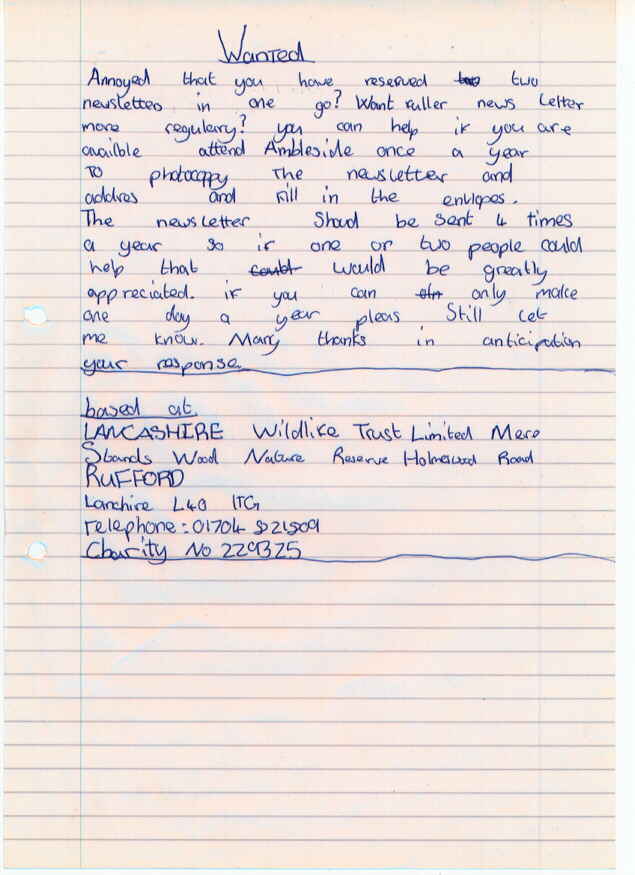 Wanted
Annoyed that you have reserved two two
newsletter in one go? Want fuller news letter
more regulary? you can help if you are
availble attend Ambleside once a year
To photocoppy The newsletter and
addres and fill in the envlopes.
The newsletter Shoud be sent 4 times
a year so if one or two people could
help that coubt would be greatly
appreciated. if you can only make
one day a year pleas Still let
me know. Many thanks in anticipation
your response.
based at.
LANCASHIRE Wildlife Trust Limited Mere
Sbands Wood Nature Reserve Holmeswood Road
RUFFORD
Lanchire L40 1TG
Telephone: 01704
Charity No 229325